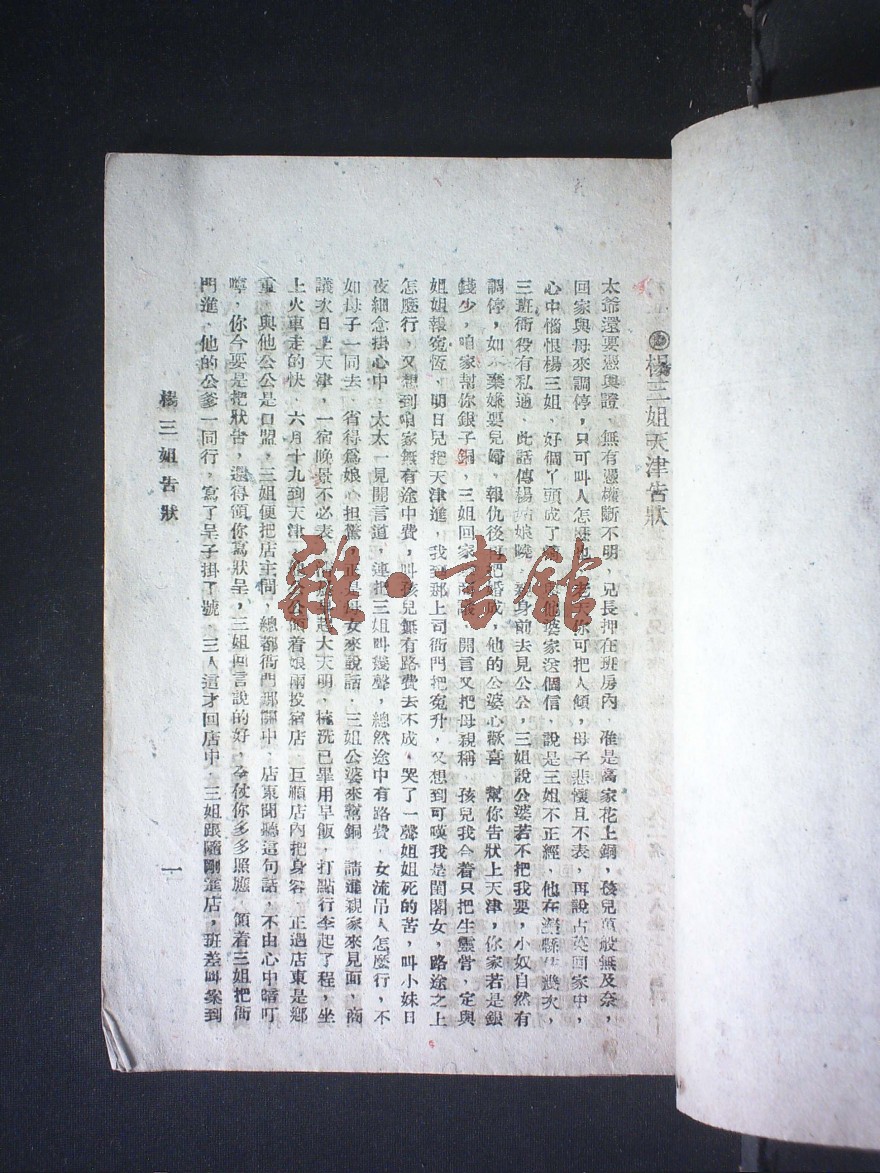 楊三姐天津告狀
太爺還要憑與證，無有憑據斷不明，兄長押在班房內，准是高家花上銅，孩兒萬般無及奈，
回家與母來調停，只可叫人怎，老天你可把人傾，母子悲懷且不表，再說占英回家中，
心中惱恨楊三姐，好個丫頭成了，他婆家送個信，說是三姐不正經，他在灤縣住幾次，
三班衙役有私通，此話傳楊姑娘曉，身前去見公公，三姐說公婆若不把我要，小奴自然有
調停，如不棄嫌要兒婦，報仇後再把婚成，他的公婆心歡喜，幫你告狀上天津，你家若是銀
錢少，咱家幫你銀子銅，三姐回家商議，開言又把母親稱，孩兒我今着只把生靈骨，定與
姐姐報寃恆，明日兒把天津進，我到那上司衙門把寃升，又想到可嘆我是閨閣女，路途之上
怎麼行，又想到咱家無有途中費，叫孩兒無有路費去不成，哭了一聲姐姐死的苦，叫小妹日
夜細念掛心中，太太一見開言道，連把三姐叫幾聲，總然途中有路費，女流吊人怎麼行，不
如母子一同去，省得爲娘心担驚，正是母女來說話，三姐公婆來幫銅，請進親家來見面，商
議次日上天津，一宿晚景不必表，起大天明，梳洗已畢用早飯，打點行李起了程，坐
上火車走的快，六月十九到天津，公公領着娘兩投宿店，巨順店內把身容，正遇店東是鄉
重，與他公公是口盟，三姐便把店主問，總都衙門那關中，店東聞聽這句話，不由心中暗叮
嚀，你今要是把狀告，還得領你寫狀呈，三姐回言說的好，多多照應，領着三姐把衙
門進，他的公爹一同行，寫了呈子掛了號，三人這才回店中，三姐跟隨剛進店，班差叫案到
楊三姐告狀
一
雜·書館